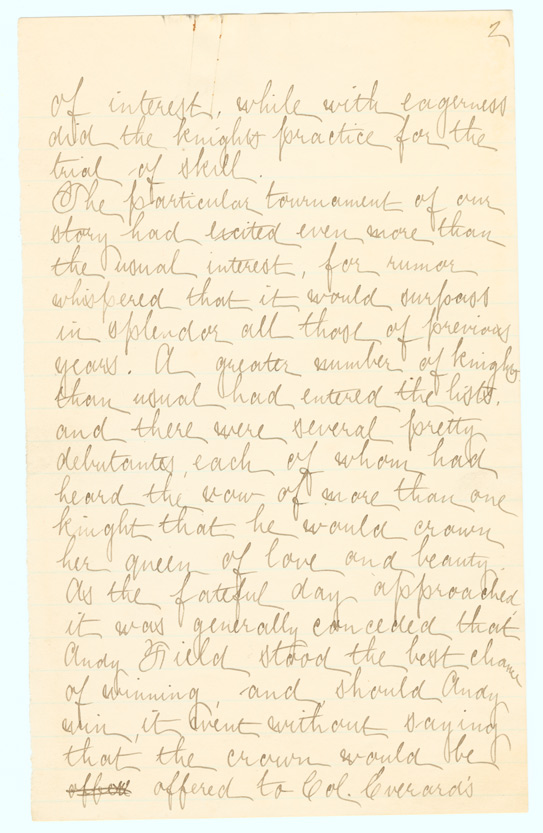 2
of interest, while with eagerness
did the knights practice for the
trial of skill.
The particular tournament of our
story had excited even more than
the usual interest, for rumor
whispered that it would surpass
in splendor all those of previous
years. A greater number of knights
than usual had entered the lists,
and there were several pretty
debutantes, each of whom had
heard the vow of more than one
knight that he would crown
her queen of love and beauty.
As the fateful day approached,
it was generally conceded that
Andy Field stood the best chance
of winning, and, should Andy
win, it went without saying
that the crown would be
offered to Col. Everard's